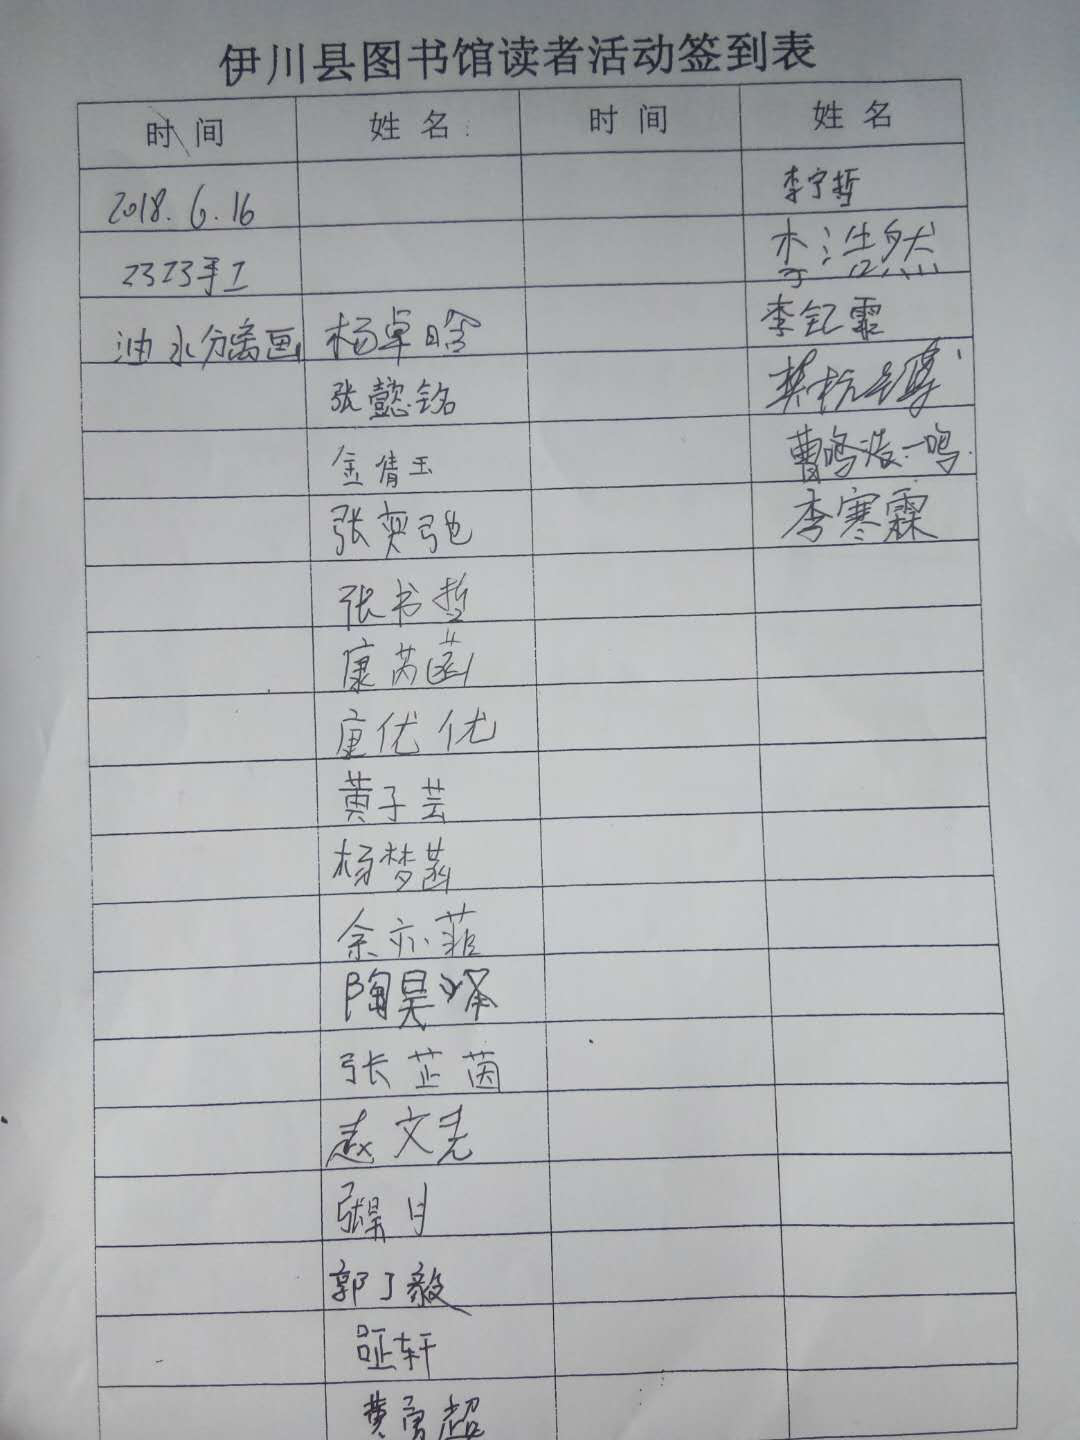 伊川县图书馆读者活动签到表
时间 姓名 时间 姓名
2018.6.16 李宁哲
2323手工 李浩然
油水分离画 杨卓晗 李钇霖
张懿铭
金倩玉 曹鸣浩一鸣
张奕弛 李寒霖
张书哲
康芮菡
康优优
黄子芸
杨梦菡
余亦菲
陶昊泽
张芷茵
赵文尧
张昊月
郭丁毅
轩
黄勇超